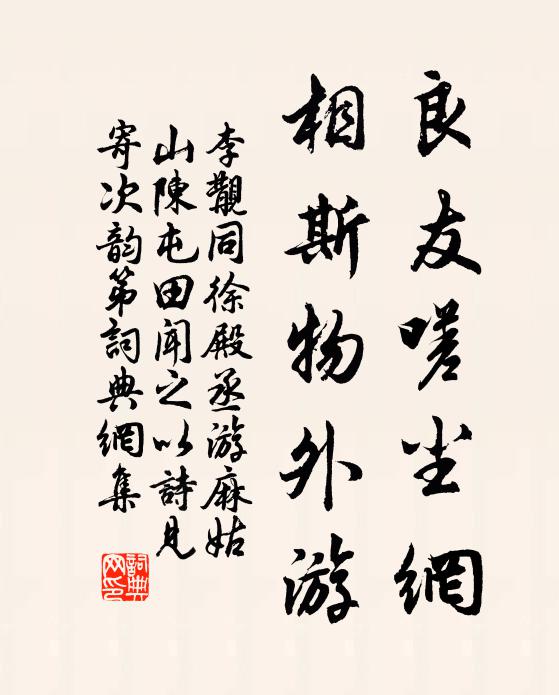 良友嗟尘網
相斯物外游
李覯同徐殿丞游麻姑
山陳屯田闻之以詩見
寄次韵第詞典網集
詞典
网印